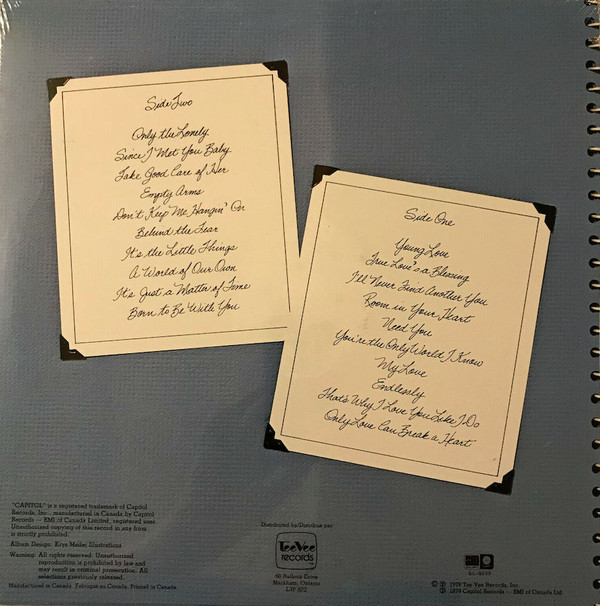 Side Two
Only the Lonely
Since I Met You Baby
Take Good Care of Her
Empty Arms
Don't Keep Me Hangin' On
Behind the Tear
It's the Little Things
A World of Our Own
It's Just a Matter of Time
Born to Be With You
Side One
Young Love
True Love's a Blessing
I'll Never Find Another You
Room in Your Heart
Need You
You're the Only World I Know
My Love
Endlessly
That's Why I Love You Like I Do
Only Love Can Break a Heart
"CAPITOL" is a registered trademark of Capitol
Records, Inc., manufactured in Canada by Capitol
Records — EMI of Canada Limited, registered user.
Unauthorized copying of this record in any form
is strictly prohibited.
Album Design: Krys Illustrations
Warning: All rights reserved. Unauthorized
reproduction is prohibited by law and
may result in criminal prosecution. All
selections previously released.
Manufactured in Canada. Fabriqué au Canada. Printed in Canada.
Distributed by/Distribué par:
TeeVee
records
Markham, Ontario
1979 Tee Vee Records, Inc.
1979 Capitol Records — EMI of Canada Ltd